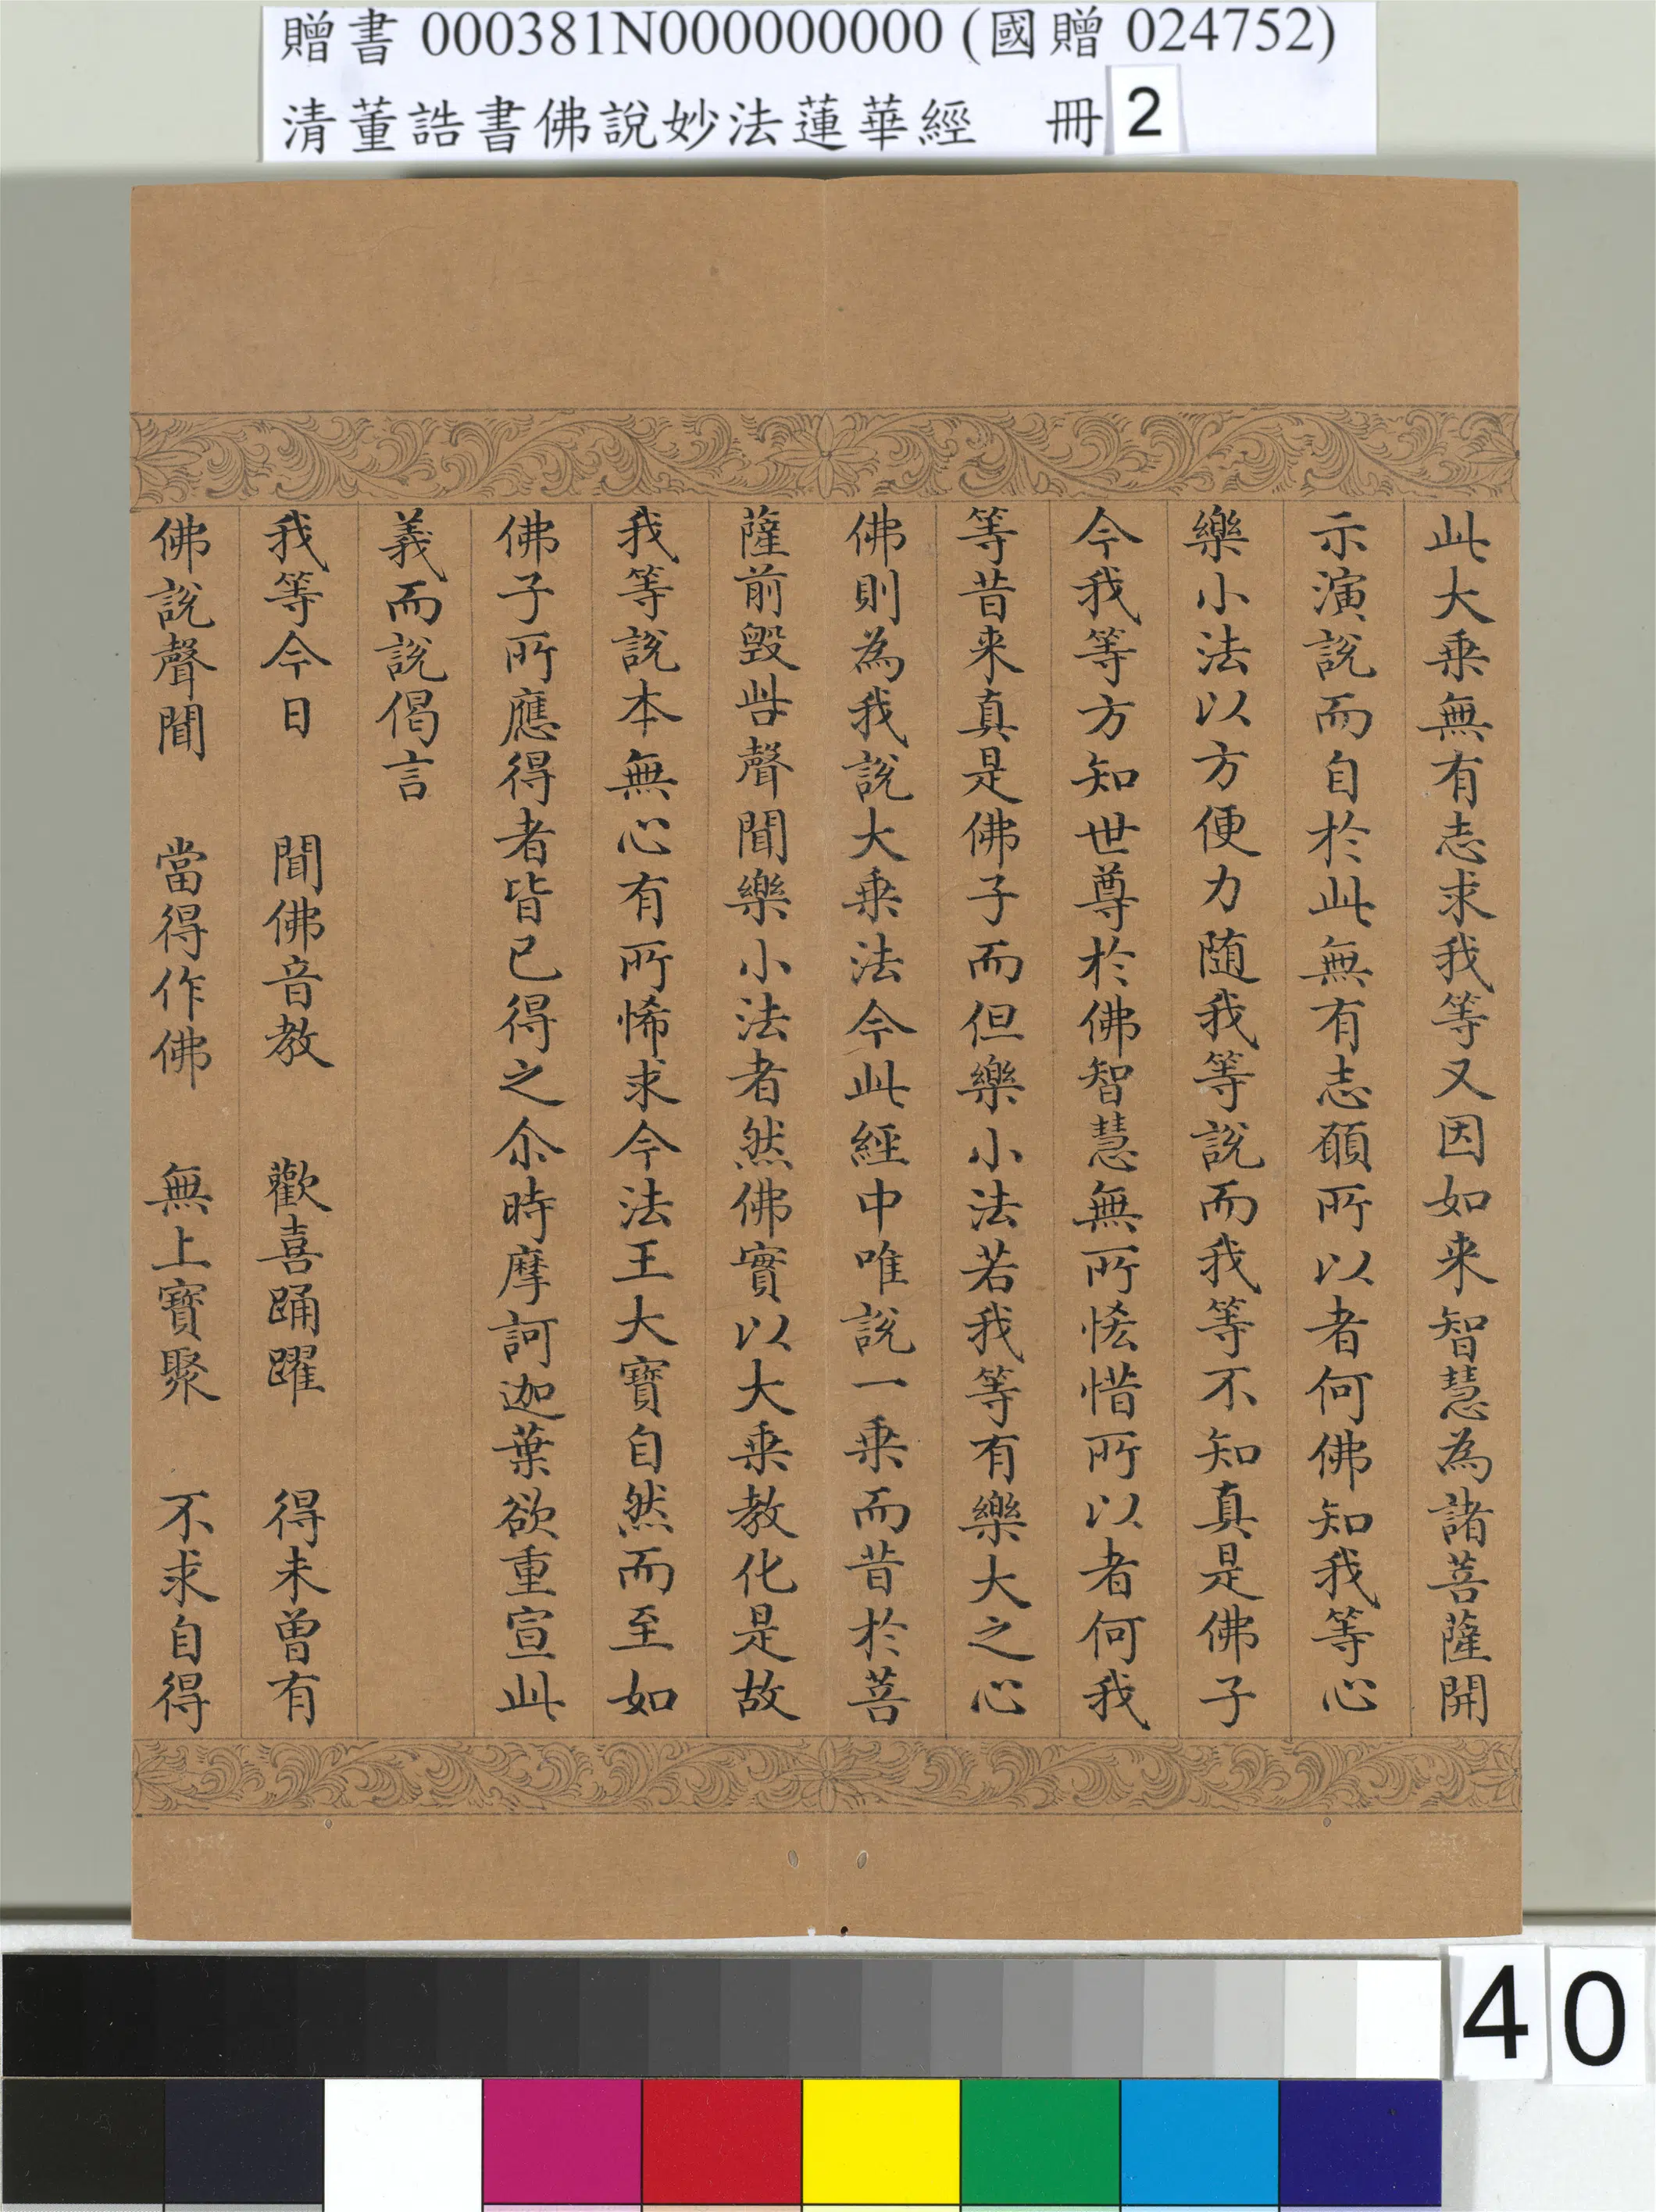 贈書 000381N000000000 (國贈 024752)
清董誥書佛說妙法蓮華經 冊 2
此大乗無有志求我等又因如来智慧為諸菩薩開
示演說而自於此無有志願所以者何佛知我等心
樂小法以方便力随我等說而我等不知真是佛子
今我等方知世尊於佛智慧無所恡惜所以者何我
等昔来真是佛子而但樂小法若我等有樂大之心
佛則為我說大乗法今此經中唯說一乗而昔於菩
薩前毀呰聲聞樂小法者然佛實以大乗教化是故
我等說本無心有所悕求今法王大寶自然而至如
佛子所應得者皆已得之尒時摩訶迦葉欲重宣此
義而說偈言
我等今日 聞佛音教 歡喜踊躍 得未曾有
佛說聲聞 當得作佛 無上寶聚 不求自得
40